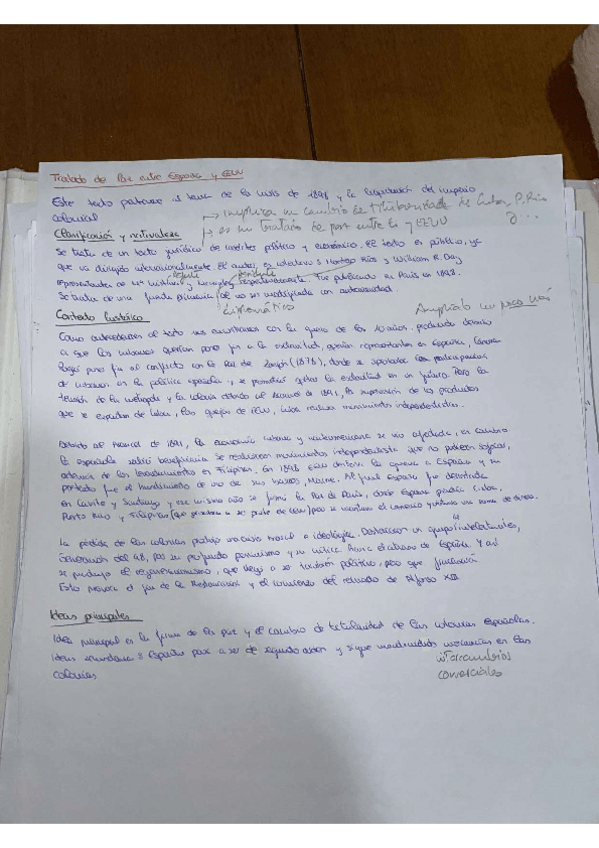 Tratado de Paz entre España y EEUU
Este texto pertenece al tema de la crisis de 1898 y la liquidación del imperio
colonial
→ implica un cambio de titularidad de Cuba, P. Rico
y...
Clasificación y naturaleza
→ es un tratado de paz entre Es y EEUU
Se trata de un texto jurídico de carácter político y económico. El texto es público, ya
que va dirigido internacionalmente. El autor, es colectivo Montero Ríos y William R. Day
representantes de respectivamente. Fue publicado en París en 1898.
Se trata de una fuente primaria de no ser modificada con autoridad.
diplomático
Contexto histórico
Ampliarlo un poco más
Como antecedentes al texto nos encontramos con la guerra de los 10 años. producida debido
a que los cubanos querían poner fin a la esclavitud, querían representantes en España,
llegar poner fin al conflicto con la Paz de Zanjón (1878), donde se
de cubanos en la política española y se prometió quitar la esclavitud en un futuro. Pero la
tensión de la metrópoli y la colonia debido al Arancel de 1891, la de los productos
que se de Cuba, las quejas de EEUU, Cuba realiza movimientos independentistas.
Debido al Arancel de 1891, la economía cubana y norteamericana se vio afectada, en cambio
la española salió beneficiaria. Se realizaron movimientos independentistas que no pudieron
además de los levantamientos en Filipinas. En 1898 EEUU declara la guerra a España y su
pretexto fue el hundimiento de uno de sus barcos, Maine. Al final España fue derrotada
en Cavite y Santiago y ese mismo año se firmó la Paz de París, donde España pierde Cuba,
Puerto Rico y Filipinas
La pérdida de las colonias produjo una crisis moral e ideológica. Destacaron un grupo intelectuales,
Generación del 98, por su profundo pesimismo y su crítica hacia el atraso de España. Y así
se produjo el regeneracionismo, que llegó a ser también político, pero que
Esto provoca el fin de la Restauración y el comienzo del reinado de Alfonso XIII
Ideas principales
Idea principal es la firma de la paz y el cambio de titularidad de las colonias españolas.
Ideas secundarias: España pasa a ser de segundo orden y sigue manteniendo en las
colonias
intercambios
comerciales